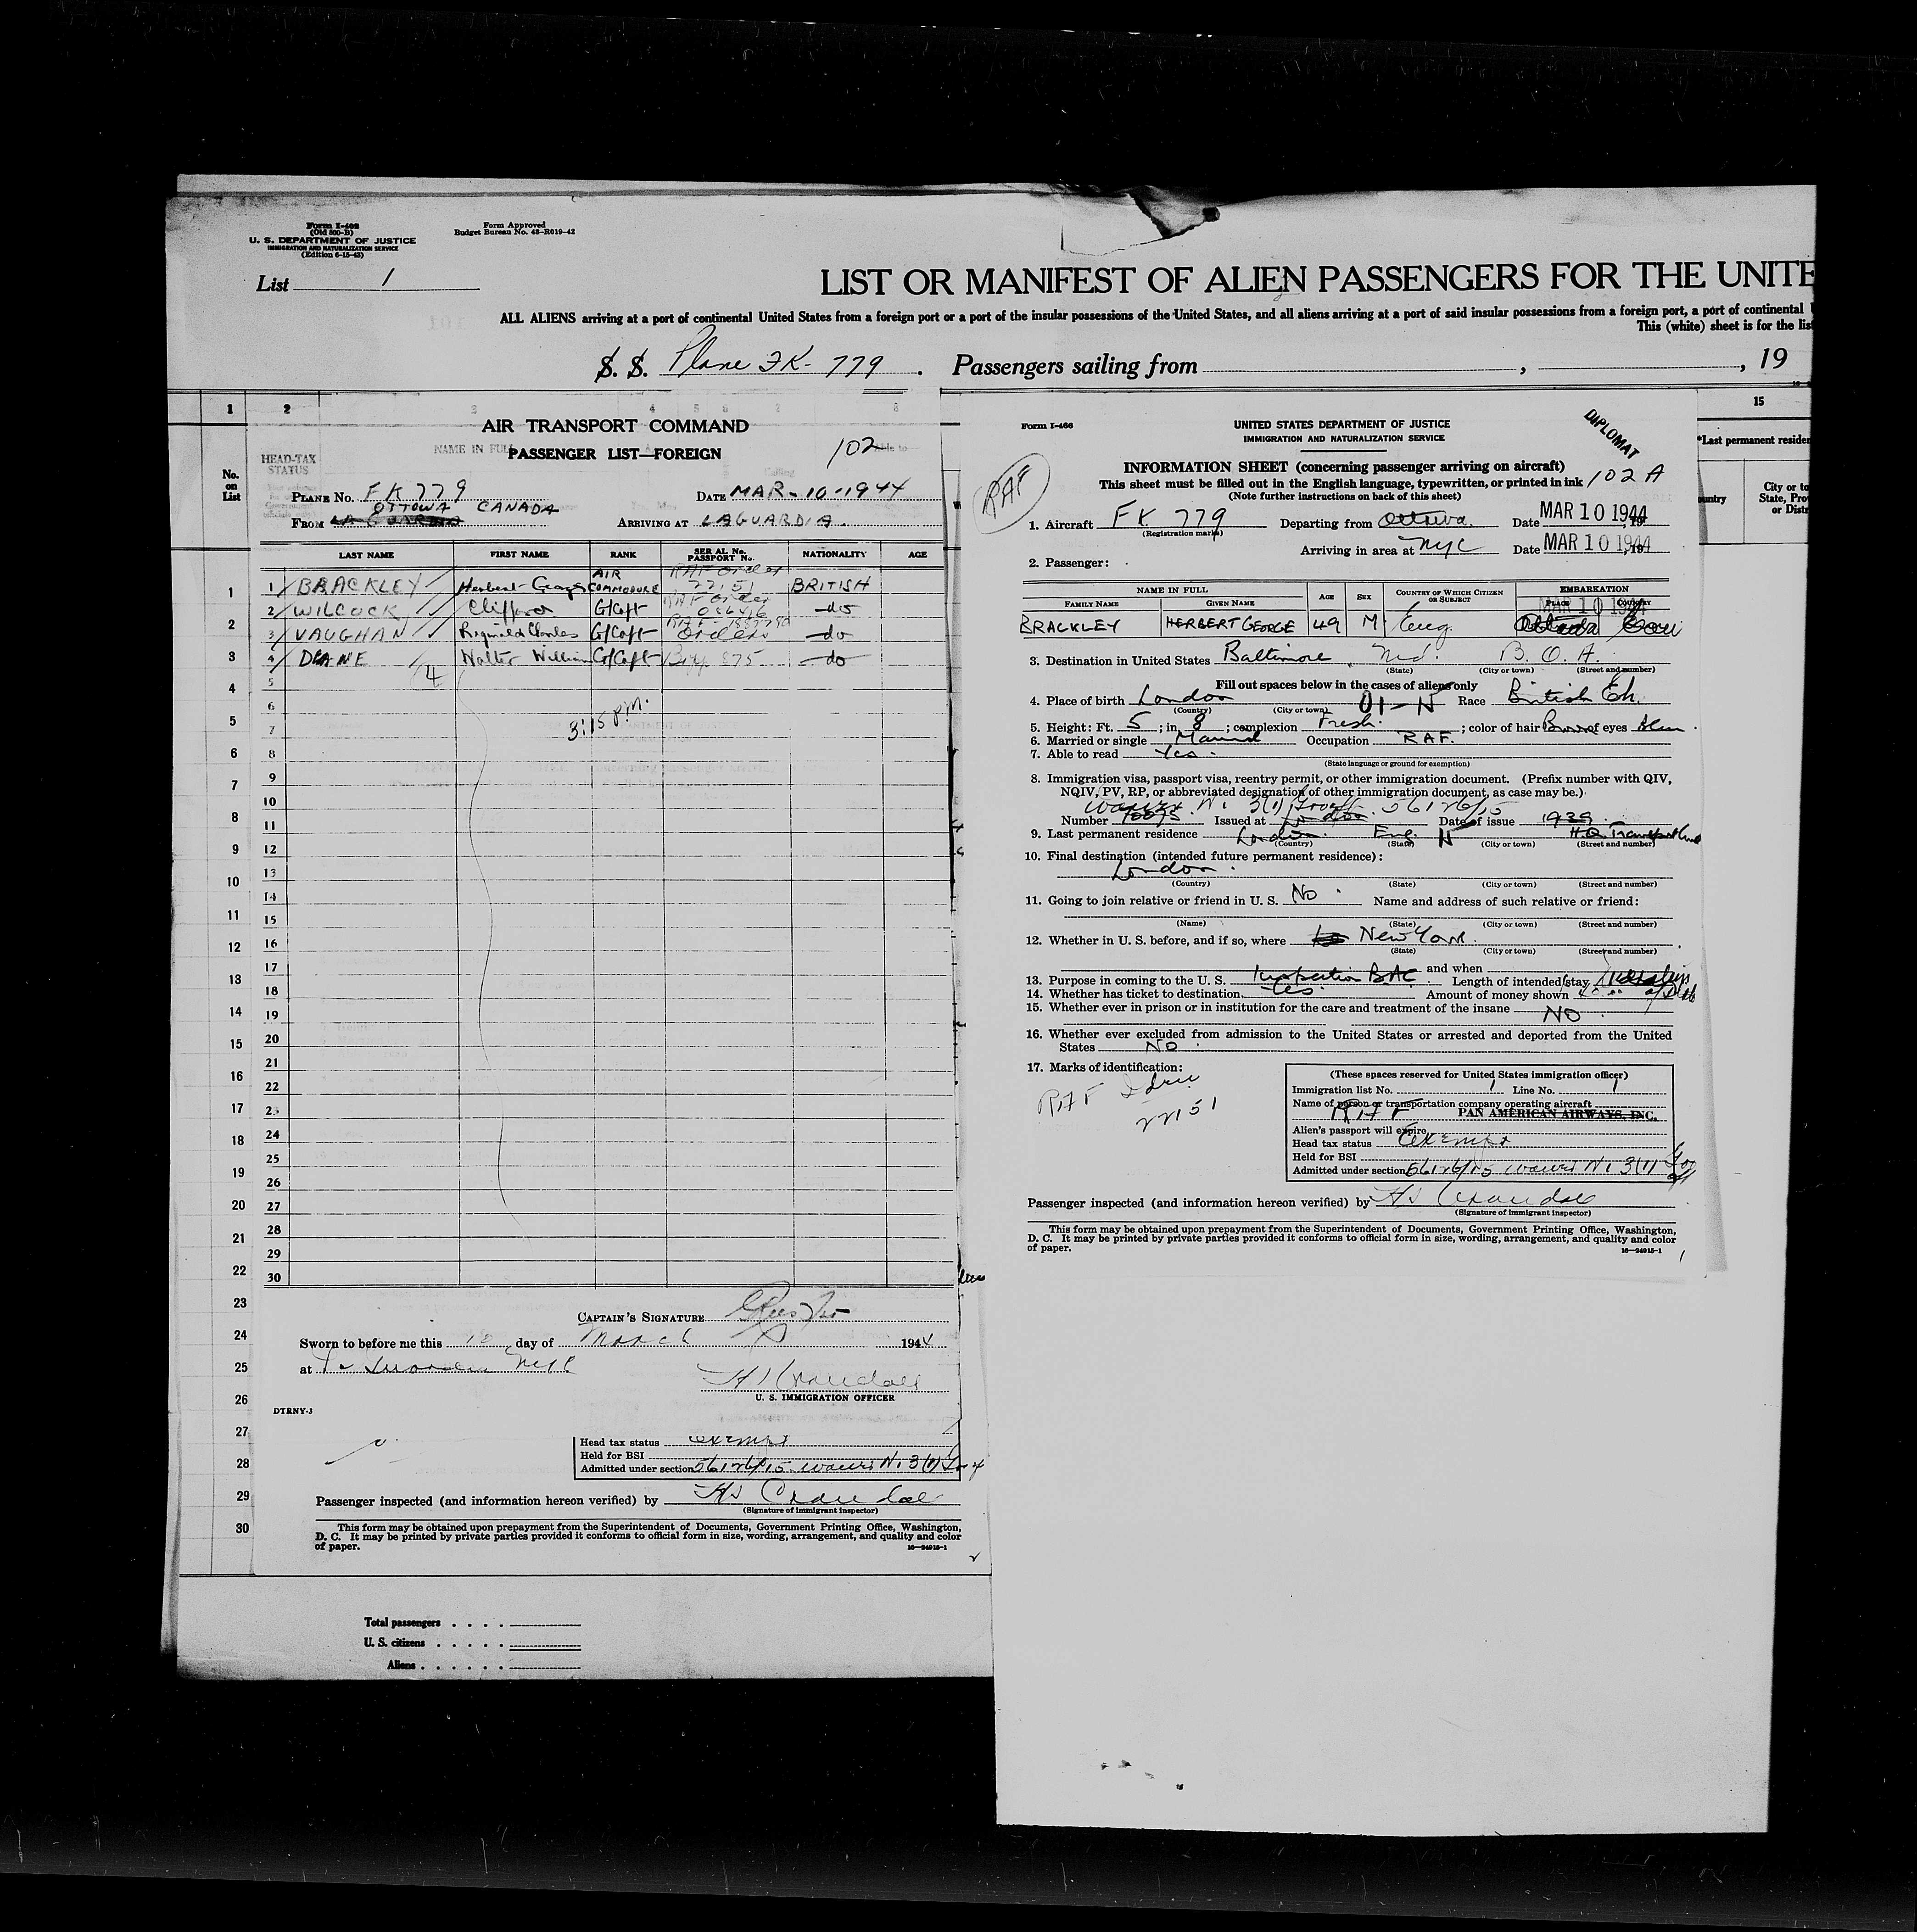 Form I-466
(Old 500-B)
U. S. DEPARTMENT OF JUSTICE
IMMIGRATION AND NATURALIZATION SERVICE
(Edition 6-15-43)
Form Approved
Budget Bureau No. 43-R019-42
List 1
LIST OR MANIFEST OF ALIEN PASSENGERS FOR THE UNITE
ALL ALIENS arriving at a port of continental United States from a foreign port or a port of the insular possessions of the United States, and all aliens arriving at a port of said insular possessions from a foreign port, a port of continental
This (white) sheet is for the lis
S. S. Plane FK-779. Passengers sailing from , , 19
1 2
No. on List
HEAD-TAX STATUS
NAME IN FULL
AIR TRANSPORT COMMAND
PASSENGER LIST—FOREIGN
102
PLANE No. FK 779 DATE MAR-10-1944
OTTOWA CANADA
FROM LA GUARDIA ARRIVING AT LAGUARDIA.
LAST NAME FIRST NAME RANK SERIAL No. PASSPORT No. NATIONALITY AGE
1 BRACKLEY Herbert George AIR COMMODORE RAF Order 22151 BRITISH
2 WILCOCK Clifford G/Capt RAF Order 086416 -do
3 VAUGHAN Reginald Charles G/Capt RAF Orders -do
4 DEANE Walter William G/Capt 875 -do
4
5
6
7
3:15 P.M.
8
9
10
11
12
13
14
15
16
17
18
19
20
21
22
23
24
25
26
27
28
29
30
CAPTAIN'S SIGNATURE
Sworn to before me this 10 day of March 1944
at
H S Crandall
U. S. IMMIGRATION OFFICER
DTRNY-J
Head tax status exempt
Held for BSI
Admitted under section 561 26/15 waiver N. 3(1)
Passenger inspected (and information hereon verified) by H S Crandall
(Signature of immigrant inspector)
This form may be obtained upon prepayment from the Superintendent of Documents, Government Printing Office, Washington,
D. C. It may be printed by private parties provided it conforms to official form in size, wording, arrangement, and quality and color
of paper. 16—24915-1
1
2
3
4
5
6
7
8
9
10
11
12
13
14
15
16
17
18
19
20
21
22
23
24
25
26
27
28
29
30
Total passengers
U. S. citizens
Aliens
Form I-466
UNITED STATES DEPARTMENT OF JUSTICE
IMMIGRATION AND NATURALIZATION SERVICE
DIPLOMAT
RAF
INFORMATION SHEET (concerning passenger arriving on aircraft)
This sheet must be filled out in the English language, typewritten, or printed in ink 102 A
(Note further instructions on back of this sheet)
1. Aircraft FK 779 Departing from Ottawa. Date MAR 10 1944
(Registration marks)
Arriving in area at NYC Date MAR 10 1944
2. Passenger:
NAME IN FULL AGE SEX COUNTRY OF WHICH CITIZEN OR SUBJECT EMBARKATION
FAMILY NAME GIVEN NAME PLACE COUNTRY
MAR 10 1944
BRACKLEY HERBERT GEORGE 49 M Eng. Ottawa Can
3. Destination in United States Baltimore, Md. B. O. A.
(State) (City or town) (Street and number)
Fill out spaces below in the cases of aliens only
4. Place of birth London 01-N Race British Eh.
(Country) (City or town)
5. Height: Ft. 5; in 8; complexion Fresh.; color of hair Brown of eyes Blue.
6. Married or single Married Occupation RAF.
7. Able to read Yes.
(State language or ground for exemption)
8. Immigration visa, passport visa, reentry permit, or other immigration document. (Prefix number with QIV,
NQIV, PV, RP, or abbreviated designation of other immigration document, as case may be.)
waiver N. 3(1) 561 26/15
Number Issued at London. Date of issue 1939.
9. Last permanent residence London. Eng. N H.Q. Transport
(Country) (State) (City or town) (Street and number)
10. Final destination (intended future permanent residence):
London.
(Country) (State) (City or town) (Street and number)
11. Going to join relative or friend in U. S. No. Name and address of such relative or friend:
(Name) (State) (City or town) (Street and number)
12. Whether in U. S. before, and if so, where New York.
(State) (City or town) (Street and number)
and when
13. Purpose in coming to the U. S. Inspection BAC Length of intended stay
14. Whether has ticket to destination Yes. Amount of money shown
15. Whether ever in prison or in institution for the care and treatment of the insane NO.
16. Whether ever excluded from admission to the United States or arrested and deported from the United
States NO.
17. Marks of identification:
RAF 22151
(These spaces reserved for United States immigration officer)
Immigration list No. 1 Line No. 1
Name of person or transportation company operating aircraft
RAF PAN AMERICAN AIRWAYS, INC.
Alien's passport will expire
Head tax status Exempt
Held for BSI
Admitted under section 561 26/15 waiver N. 3(1)
Passenger inspected (and information hereon verified) by H S Crandall
(Signature of immigrant inspector)
This form may be obtained upon prepayment from the Superintendent of Documents, Government Printing Office, Washington,
D. C. It may be printed by private parties provided it conforms to official form in size, wording, arrangement, and quality and color
of paper. 16—24915-1
15
*Last permanent residen
untry
City or to
State, Pro
or Distr